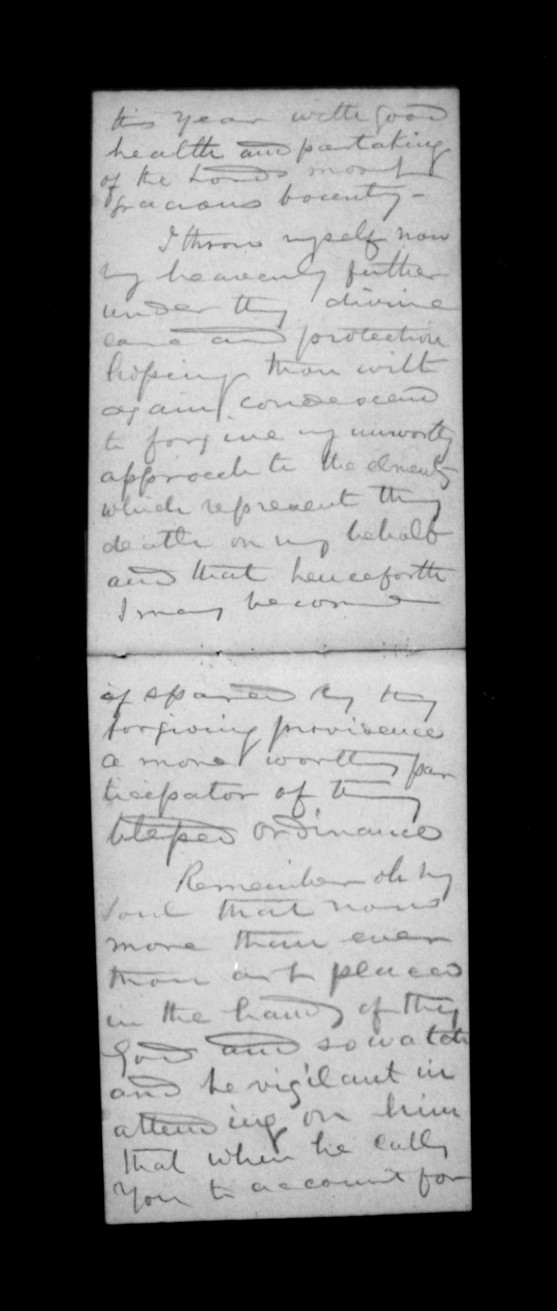 this year with good
health and partaking
of the Lords most
gracious bounty -
I throw myself now
my heavenly father
under thy divine
care and protection
hoping thou wilt
again condescend
to forgive my unworthy
approach to the elements
which represent thy
death on my behalf
and that henceforth
I may become
if spared by thy
forgiving providence
a more worthy par
ticipator of thy
blessed ordinance
Remember oh my
soul that now
more than ever
thou art placed
in the hands of thy
God and so watch
and be vigilant in
attending on him
that when he calls
you to account for